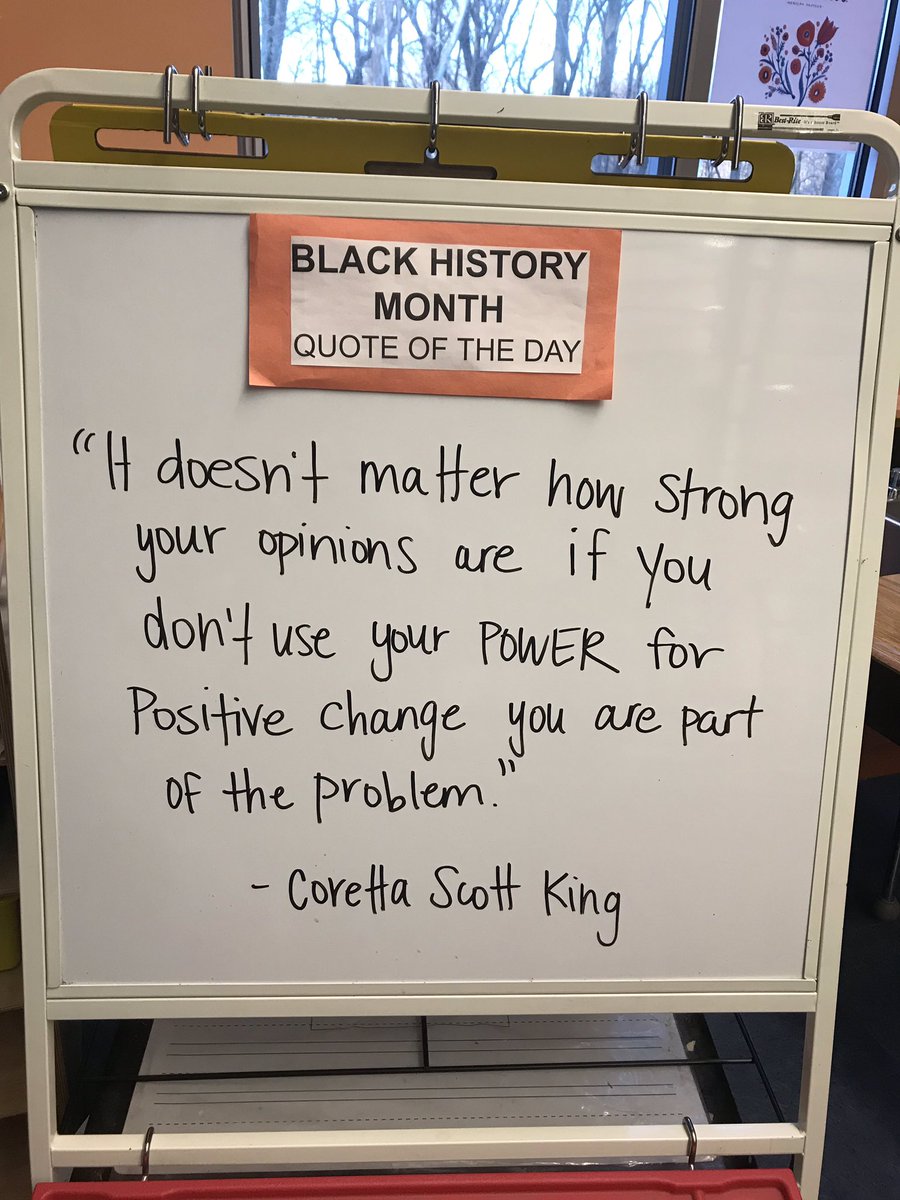 Best-Rite
BLACK HISTORY
MONTH
QUOTE OF THE DAY
"It doesn't matter how strong
your opinions are if you
don't use your POWER for
Positive change you are part
of the problem."
- Coretta Scott King